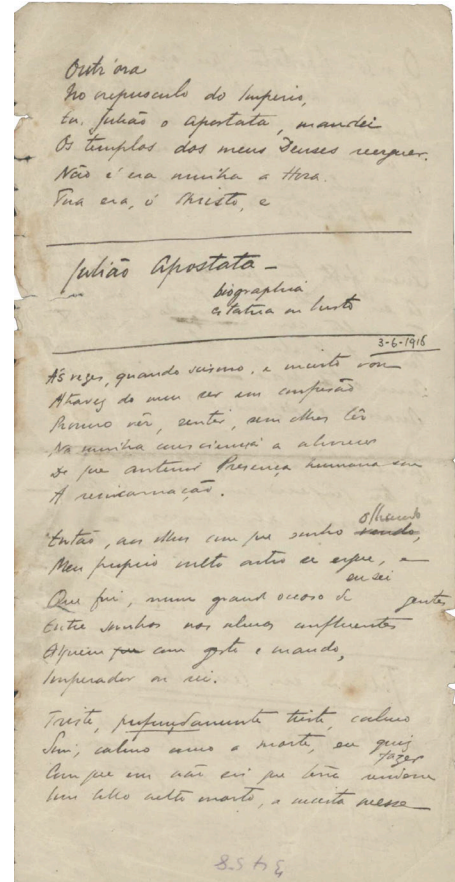 Outr'ora
No crepusculo do Imperio,
Eu, Julião o Apostata, mandei
Os templos dos meus Deuses reerguer.
Não é era minha a Hora.
Tua era, ó Christo, e
Julião Apostata —
biographia
estatua ou busto
3-6-1916
Ás vezes, quando scismo, e incerto vou
Atravez do meu ser em confusão
sentir, sem
Na minha consciencia a
De que anterior Presença humana sou
A reincarnação.
Então, aos olhos com que sonho olhando,
Meu proprio vulto outro se ergue, e
eu sei
Que fui, num grande occaso de gentes
Entre sonhos nas almas confluentes
Alguem com gesto e mando,
Imperador ou rei.
Triste, profundamente triste, calmo
Sim, calmo como a morte, eu quiz
fazer
Com que um não sei que
morto, a